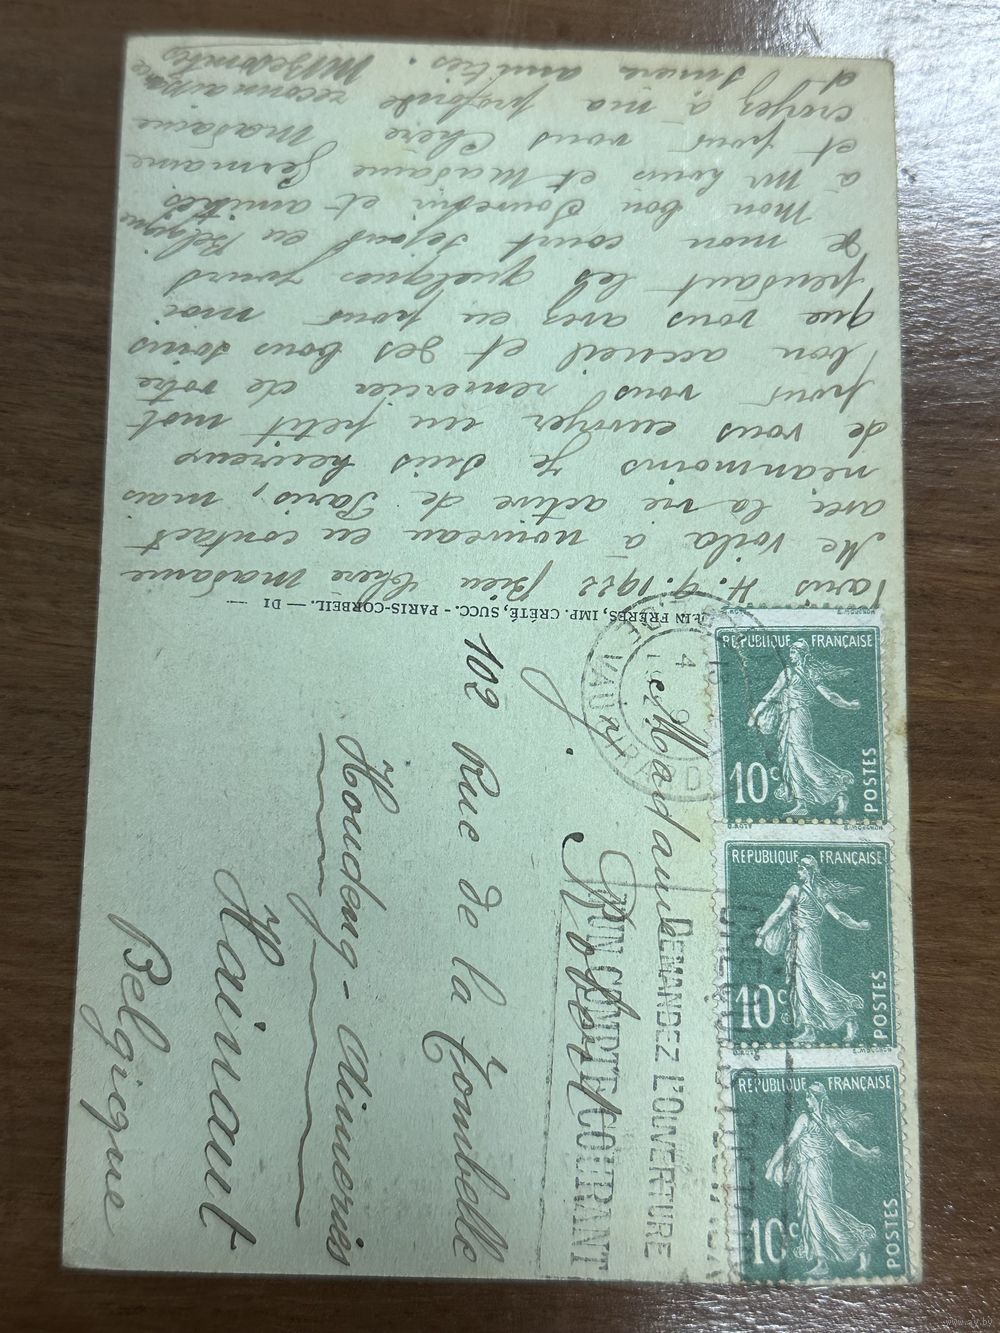 Paris 4.9.1922 Bien chère Madame
Me voilà à nouveau en contact
avec la vie active de Paris, mais
néanmoins je suis heureux
de vous envoyer un petit mot
pour vous remercier de votre
bon accueil et des bons soins
que vous avez eu pour moi
pendant les quelques jours
de mon court séjour en Belgique
Mon bon souvenir et amitiés
à Mr Louis et Madame Germaine
et pour vous Chère Madame
croyez à ma profonde reconnaissance
et amitiés.
LIN FRÈRES, IMP. CRÉTÉ, SUCC. - PARIS-CORBEIL. — DI
Madame
102 Rue de la Tombelle
Houdeng-Aimeries
Hainaut
Belgique
RÉPUBLIQUE FRANÇAISE
10c
POSTES
RÉPUBLIQUE FRANÇAISE
10c
POSTES
RÉPUBLIQUE FRANÇAISE
10c
POSTES
DEMANDEZ L'OUVERTURE
D'UN COMPTE COURANT
www.ay.by